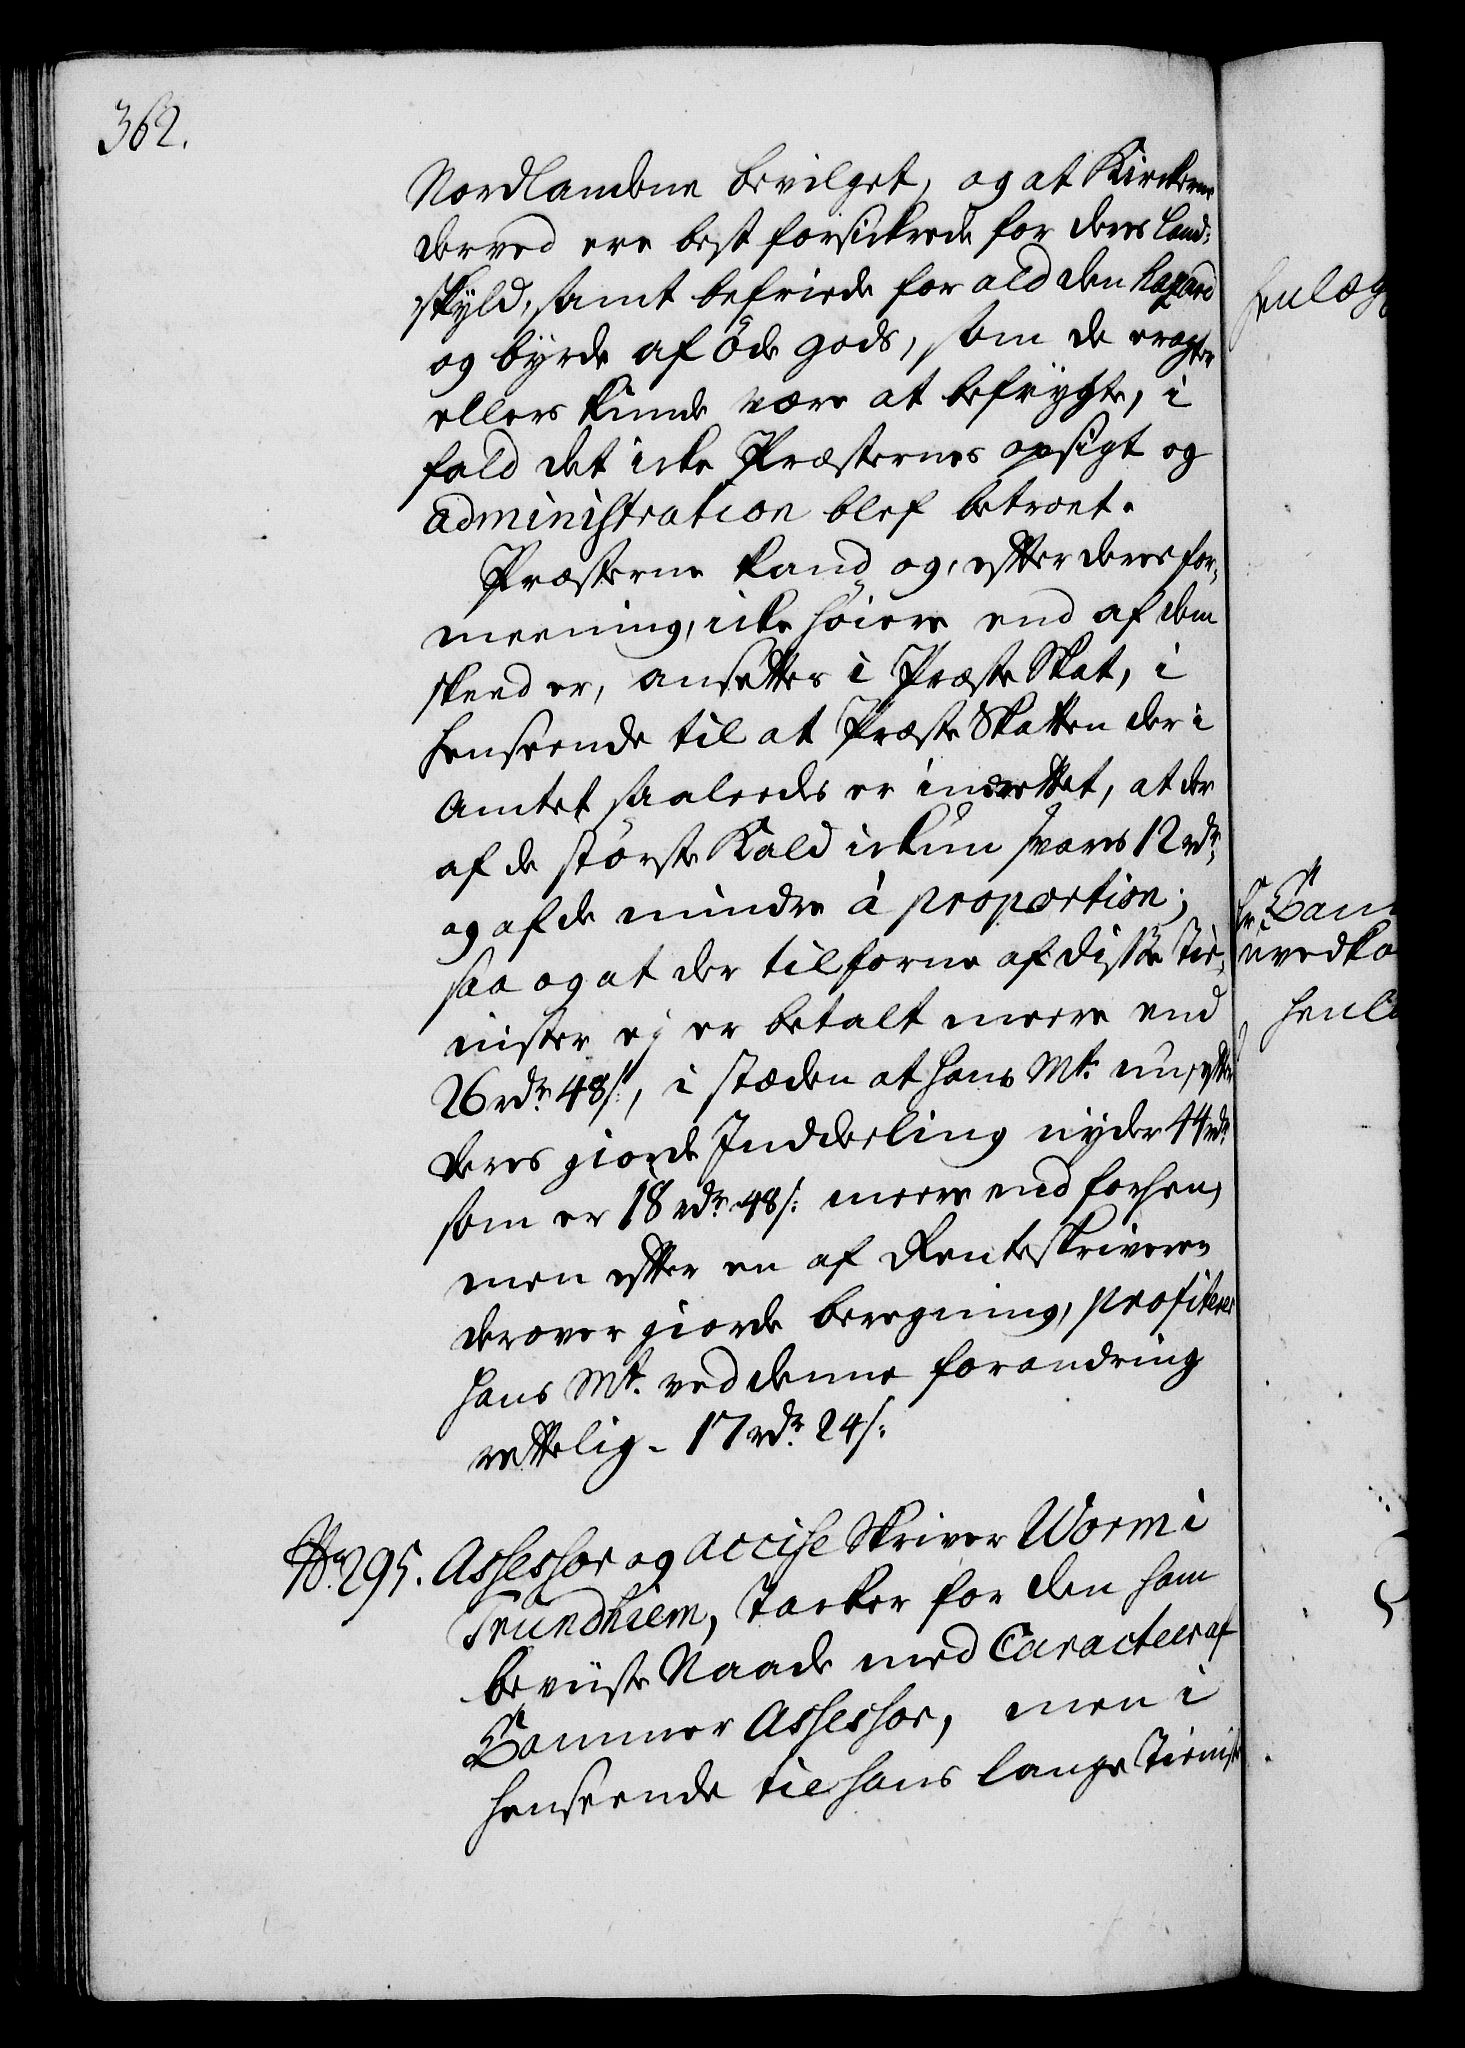 362.
Nordlandene bevilget, og at Kirkerne
derved ere best forsickrede for deres Land-
skyld, samt befriede for ald den hazard
og byrde af öde gods, som de
ellers kunde være at befrygte, i
fald det icke Præsternes opsigt og
administration blef betroet.
Præsterne kand og, efter deres for-
meening, icke höiere end af dem
skeed er, ansættes i Præste Skat, i
henseende til at Præste Skatten der i
Amtet saaleedes er indrettet, at der
af de störste Kald ickun svares 12 rdr.
og af de mindre á proportion;
saa og at der tilforne af disse Tie-
nister ej er betalt meere end
26 rdr. 48 s:, i stæden at Hans Mt. nu, efter
deres giorde Inddeeling nyder 44 rdr.
som er 18 rdr. 48 s: meere end forhen,
men efter en af Renteskriveren
derover giorde beregning, profiterer
Hans Mt. ved denne forandring
rettelig - 17 rdr. 24 s:
No. 295. Assessor og accise Skriver Worm i
Trundhiem, Tacker for den ham
beviiste Naade med Caracteer af
Cammer Assessor, men i
henseende til hans lange Tienist
henlæg
Hr. Cam
uvedko
henl